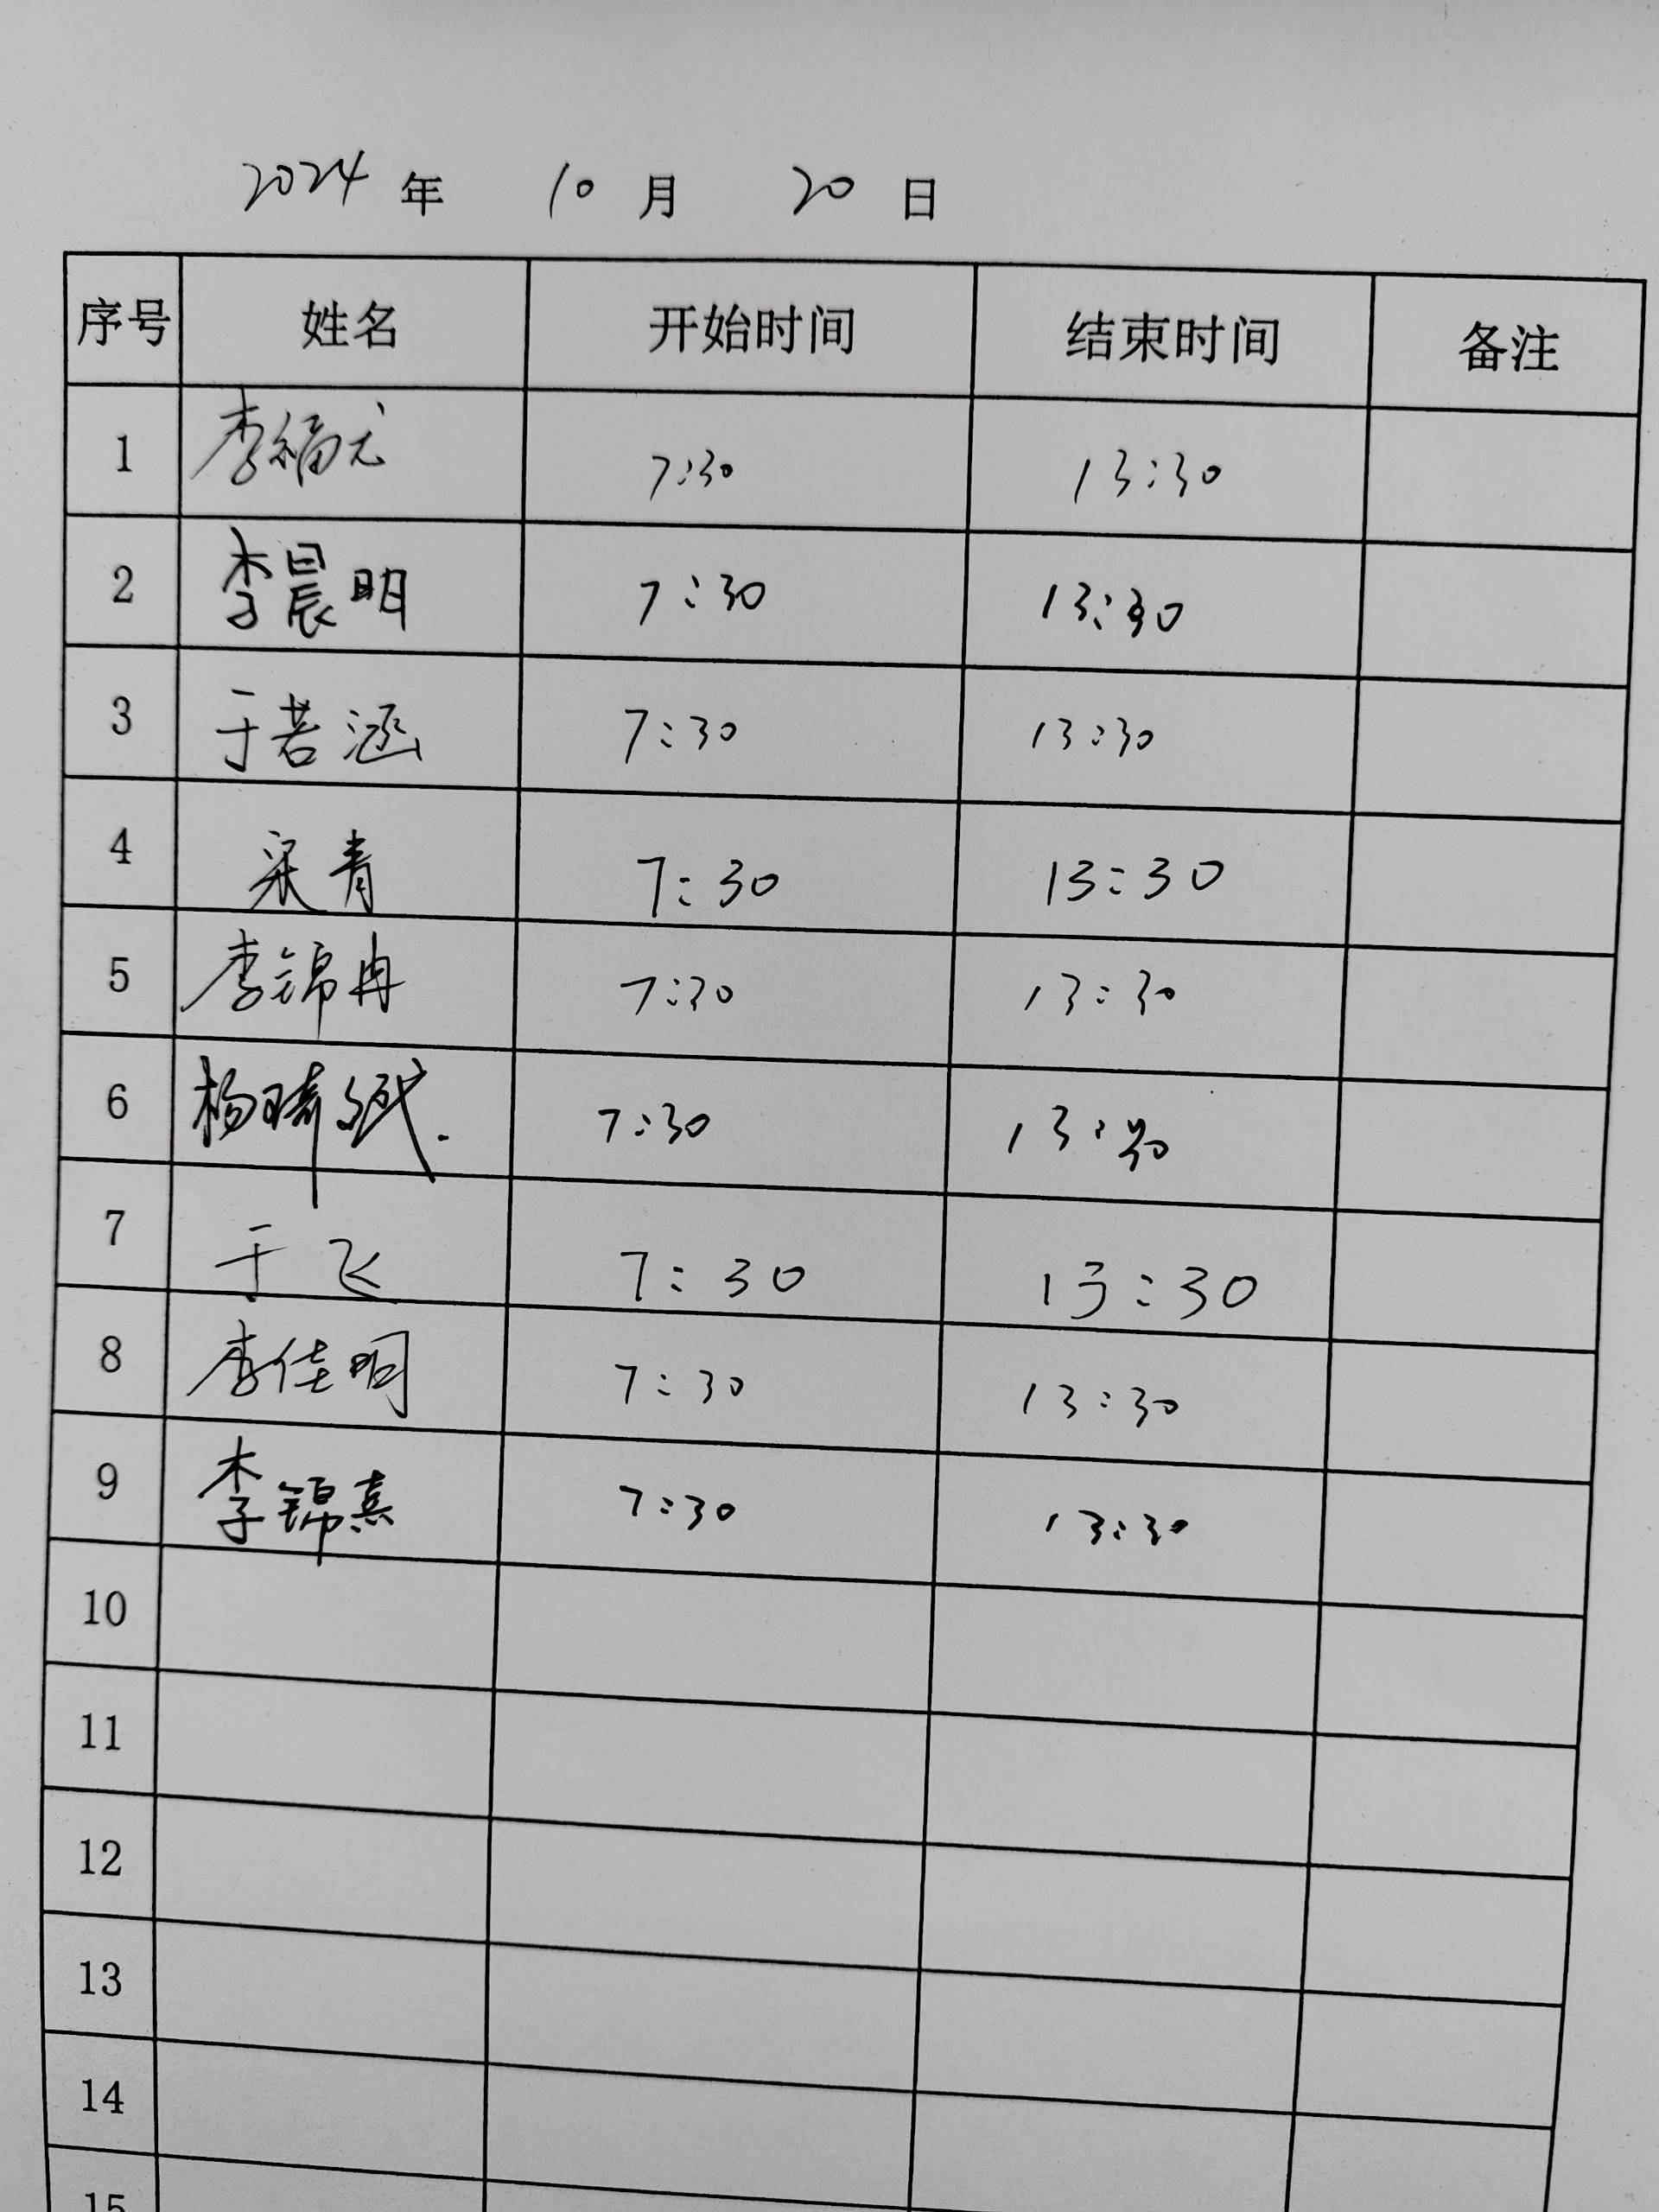 2024 年 10 月 20 日
序号 姓名 开始时间 结束时间 备注
1 李福尤 7:30 13:30
2 李晨明 7:30 13:30
3 于若涵 7:30 13:30
4 梁青 7:30 13:30
5 李锦冉 7:30 13:30
6 杨琦斌. 7:30 13:30
7 于飞 7:30 13:30
8 李佳明 7:30 13:30
9 李锦熹 7:30 13:30
10
11
12
13
14
15